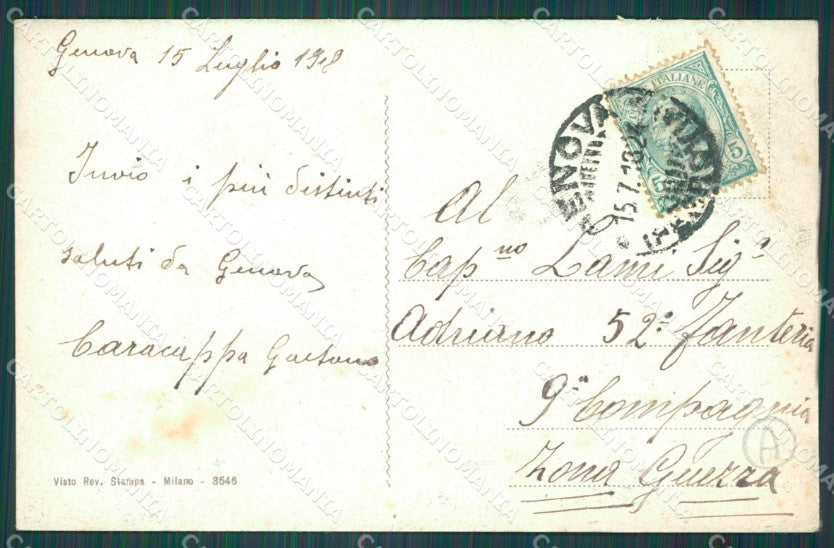 Genova 15 Luglio 1918
Invio i più distinti
saluti da Genova
Caracappa Gaetano
Visto Rev. Stampa - Milano - 3546
ITALIANE
5
GENOVA
15.7.18
Al
Cap.no Lami Sig.
Adriano 52° Fanteria
9a Compagnia
Zona Guerra
A
CARTOLINOMANIA